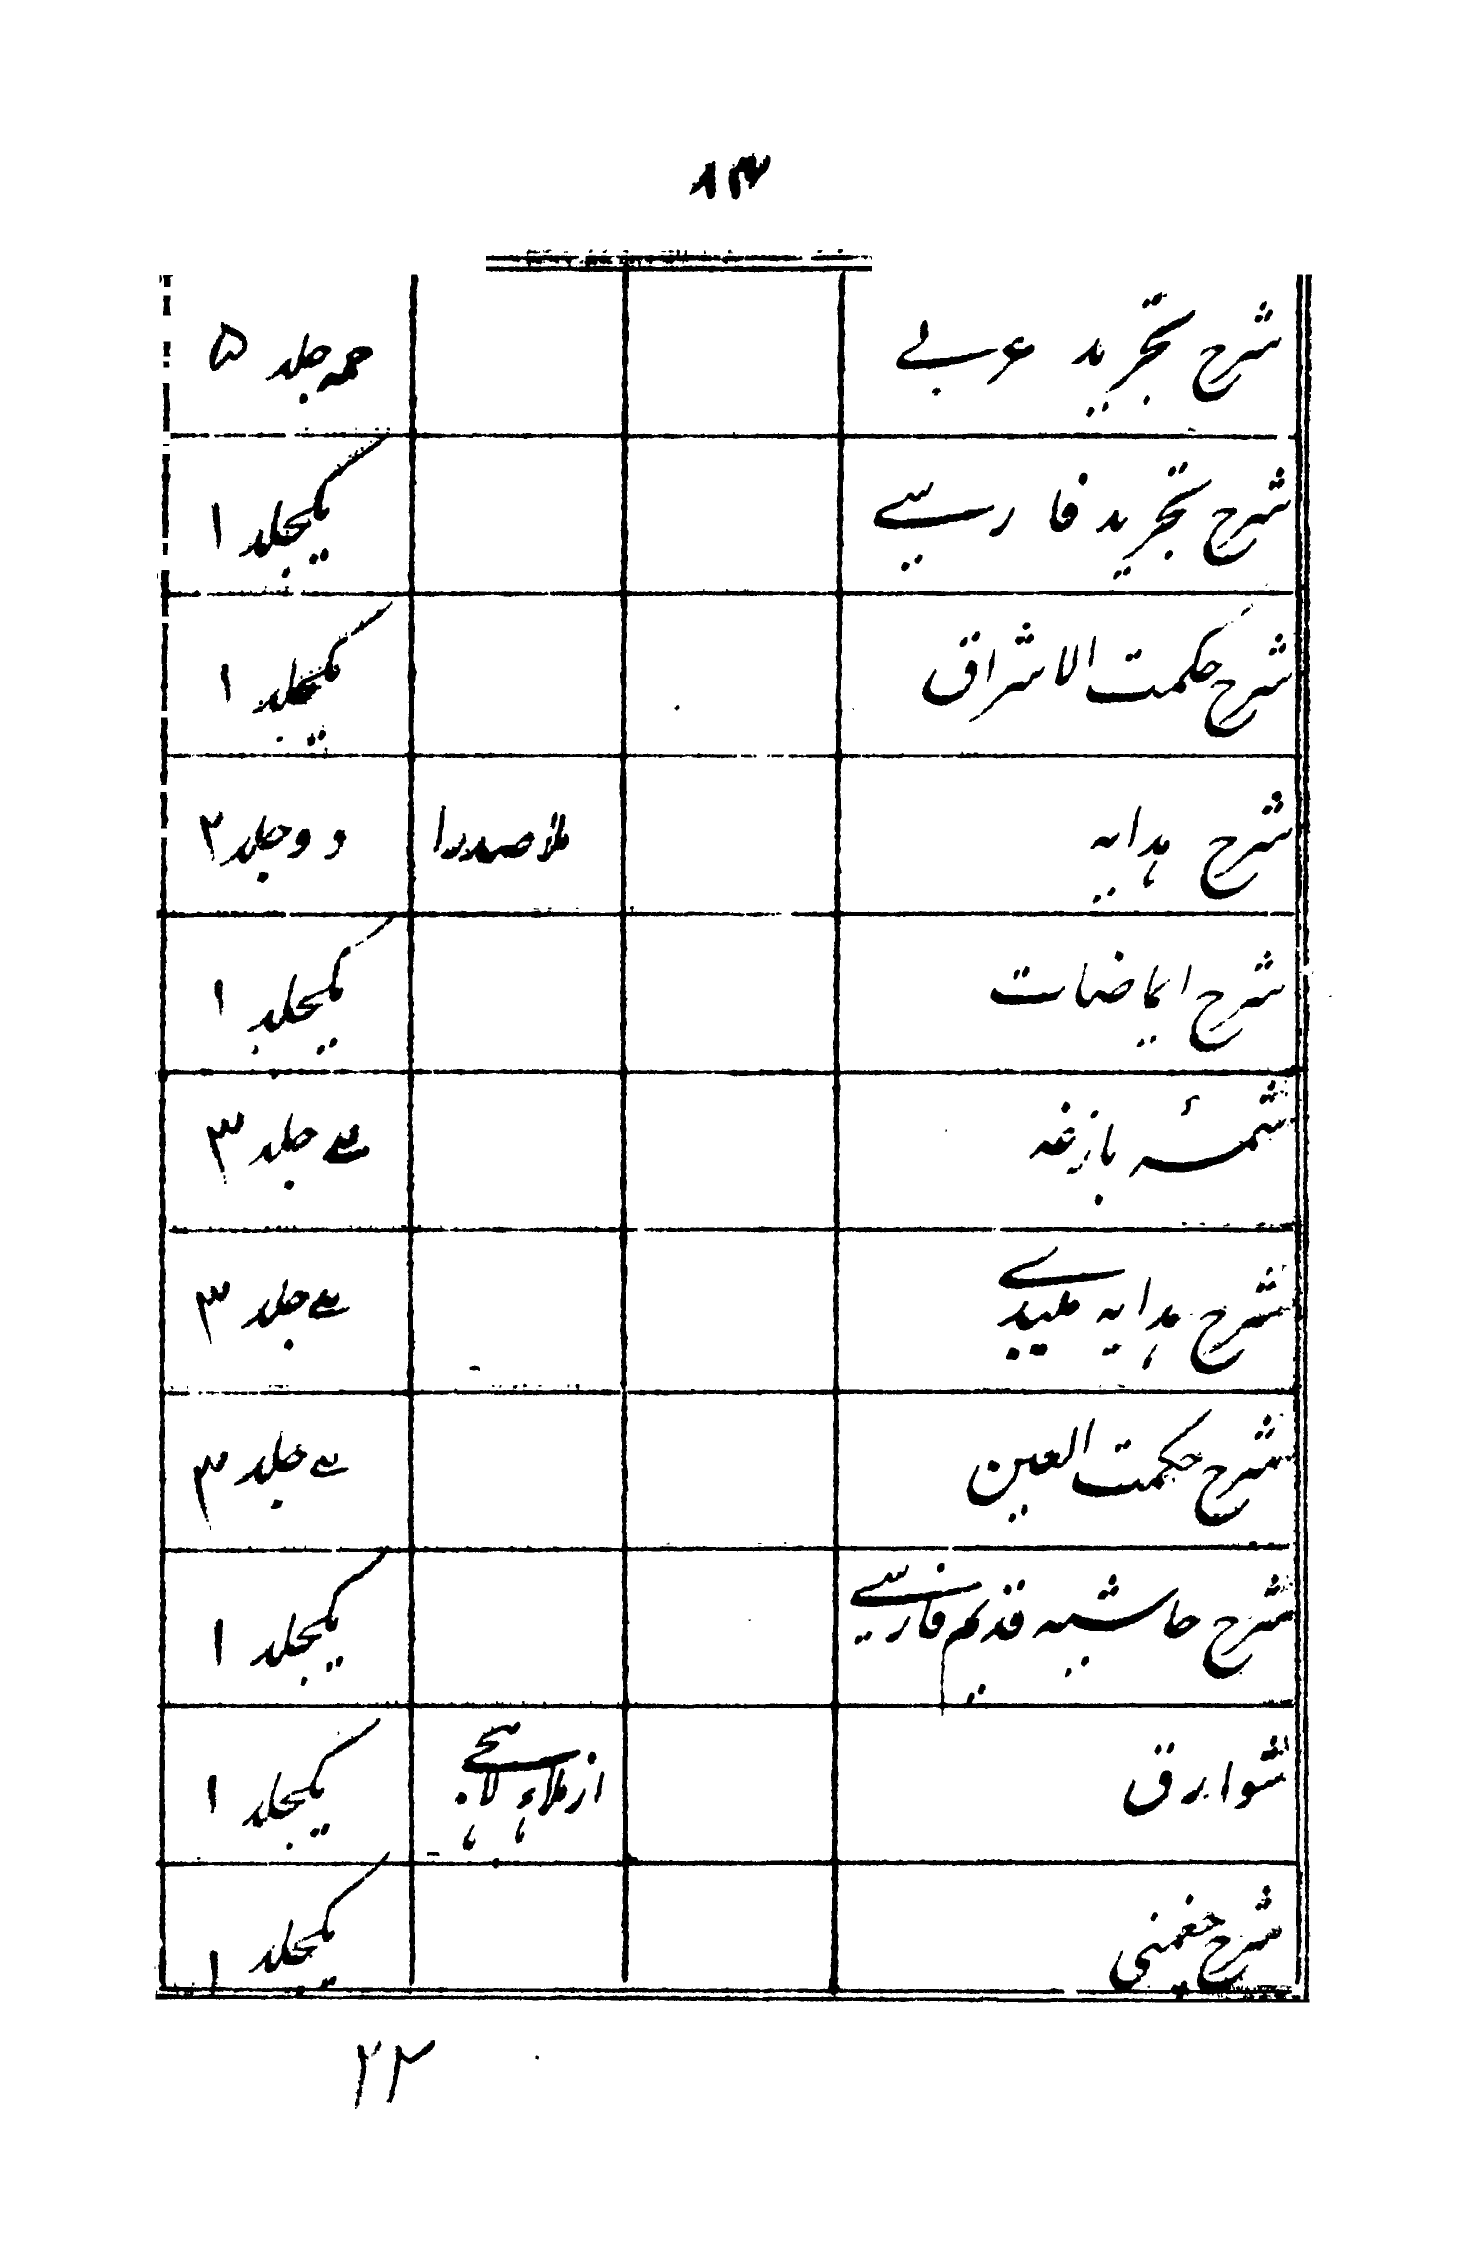 ۸۳
شرح تجرید عربی جلد ۵
شرح تجرید فارسی یکجلد ۱
شرح حکمت الاشراق یکجلد ۱
شرح ہدایہ ملا صدرا دو جلد ۲
شرح ایماضات یکجلد ۱
بازغہ سے جلد ۳
شرح ہدایہ میبدے سے جلد ۳
شرح حکمت العین سے جلد ۳
شرح حاشیہ قدیم فارسی یکجلد ۱
شوارق از یکجلد ۱
شرح چغمنی یکجلد ۱
۲۲